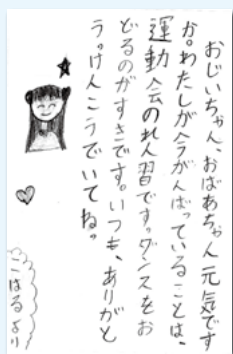 おじいちゃん、おばあちゃん元気です
か。わたしが今がんばっていることは、
運動会のれん習です。ダンスをお
どるのがすきです。いつも、ありがと
う。けんこうでいてね。
こはるより